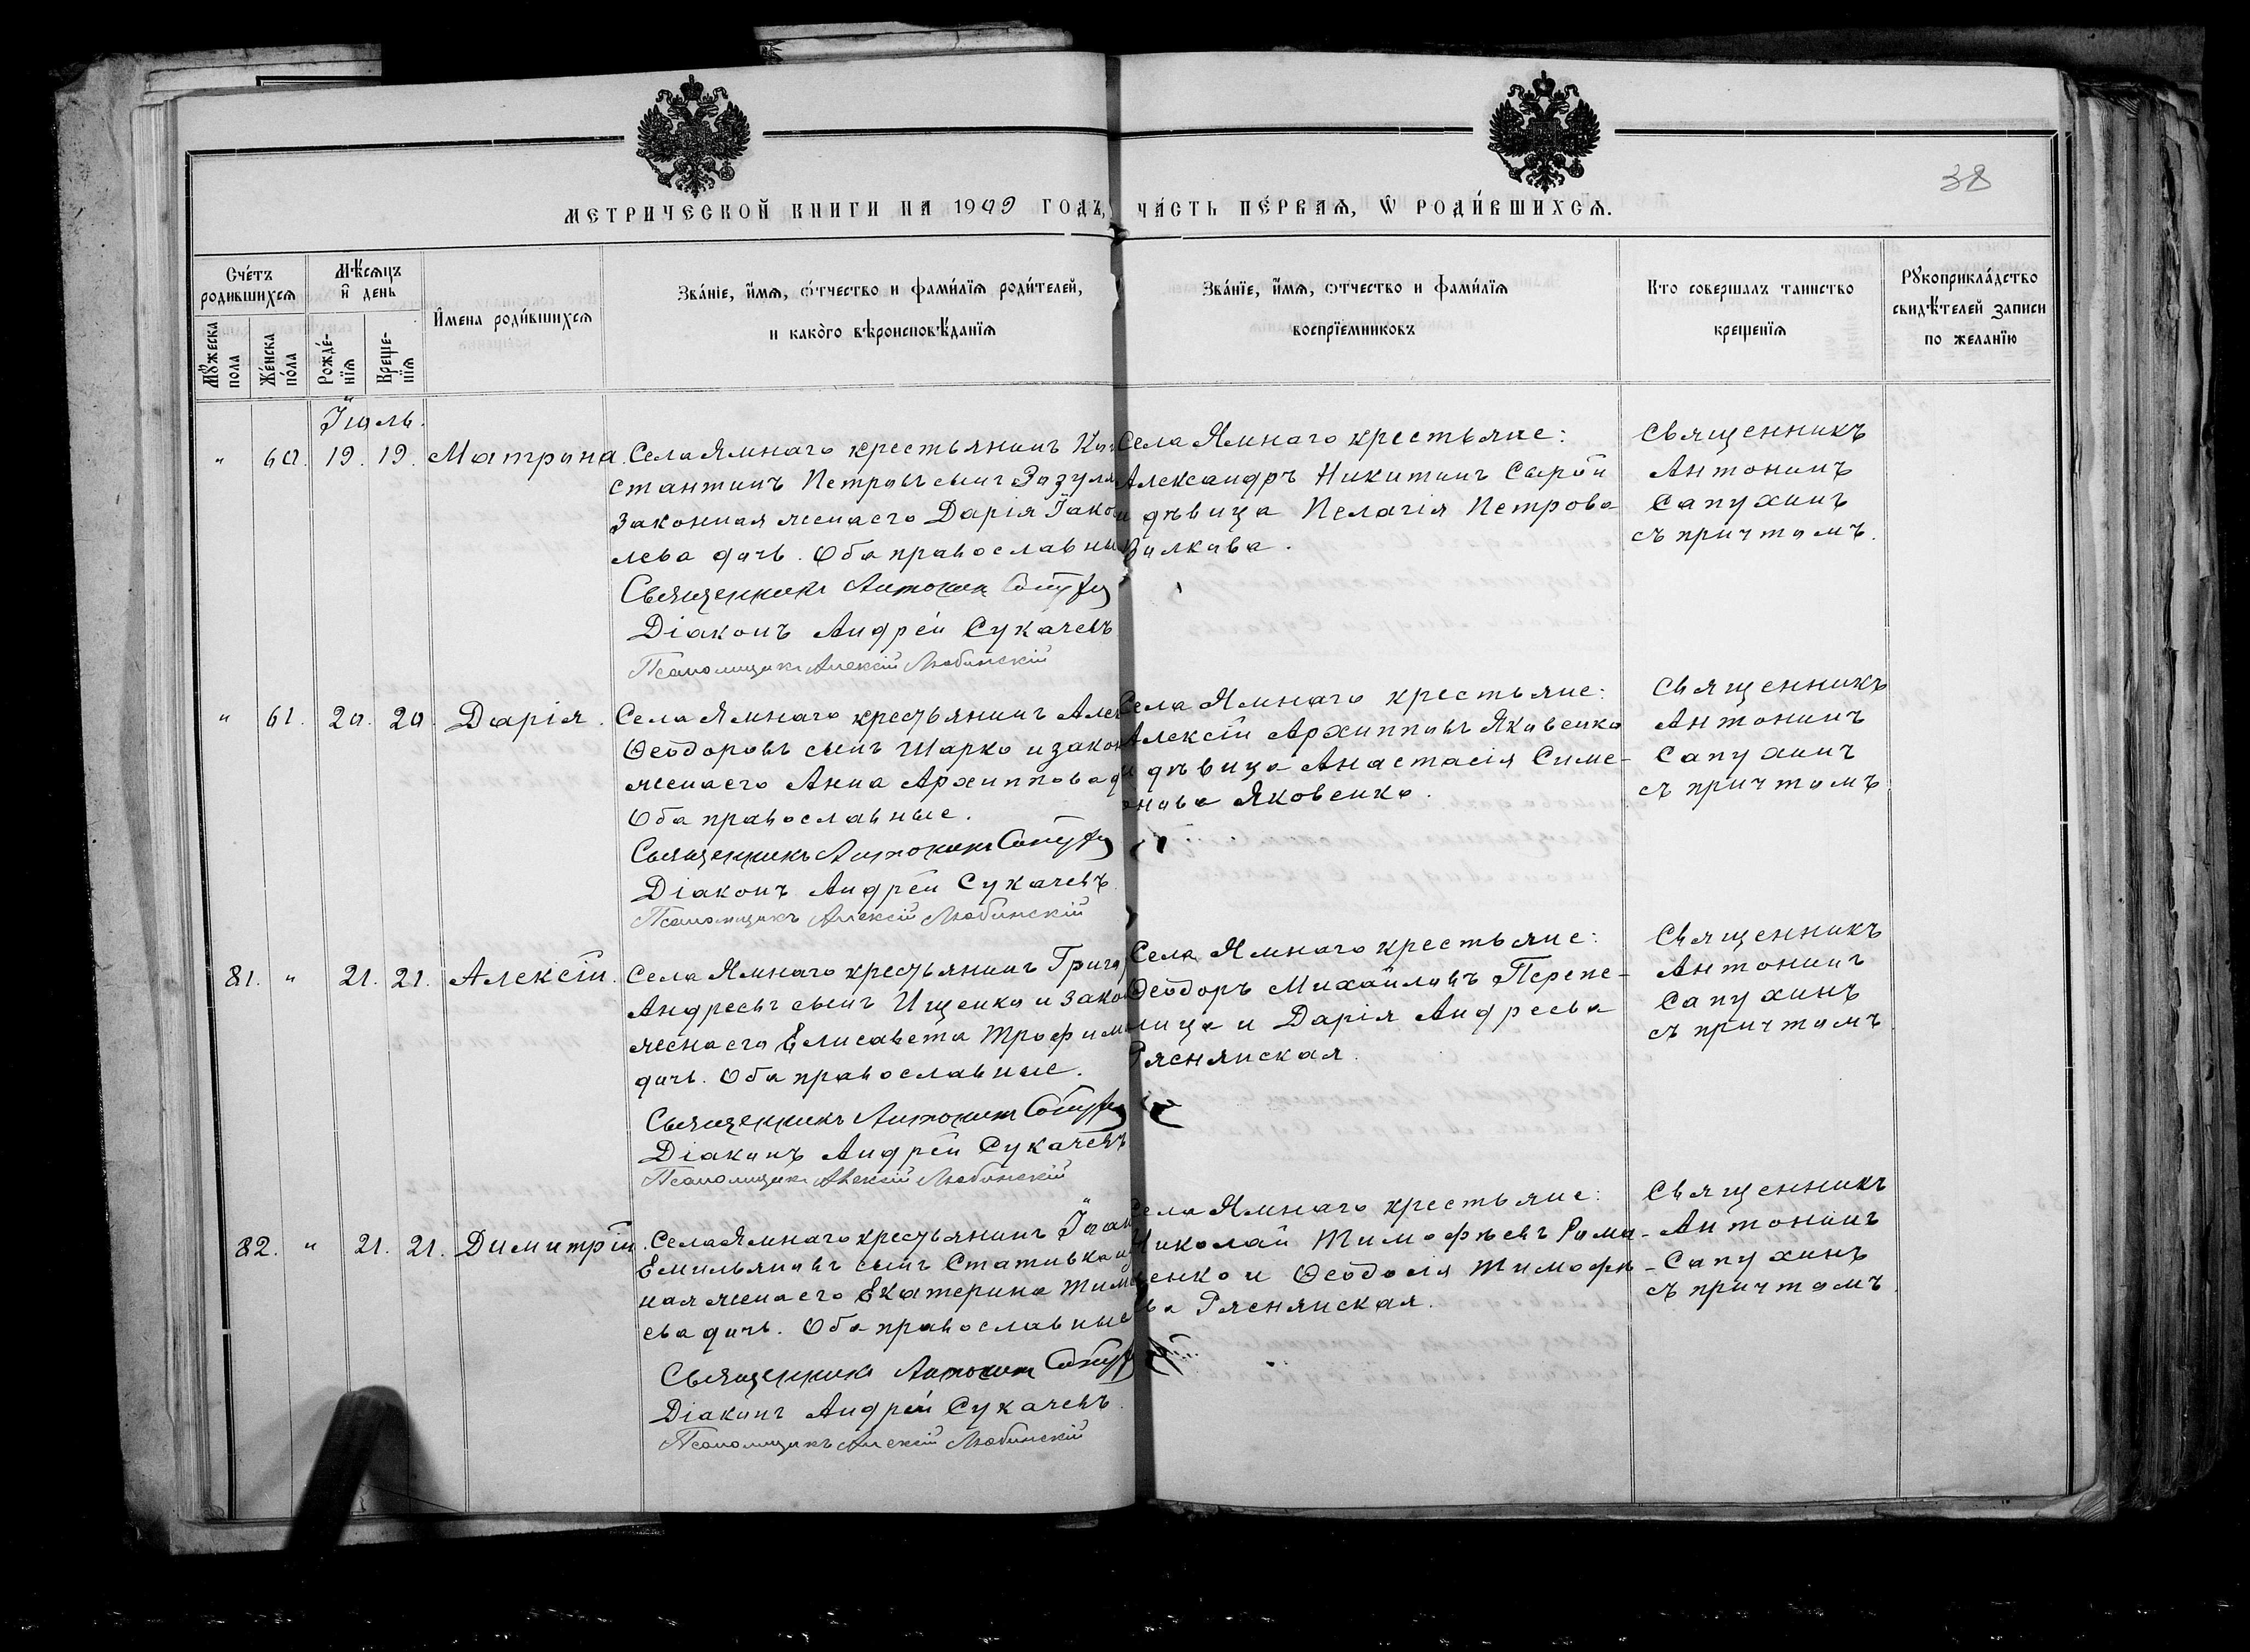 38
МЕТРИЧЕСКОЙ КНИГИ НА 1909 ГОДЪ, ЧА́СТЬ ПЕ́РВАѦ, Ѡ РОДИ́ВШИХСѦ.
Сче́тъ родившихсѧ
Мѣ́сѧцъ и҆ день
Мꙋжеска пола
Же́нска по́ла
Рожде́-нїѧ
Креще-нїѧ
И҆мена роди́вшихсѧ
Зва́нїе, и҆́мѧ, ѻ҆́тчество и фами́лїѧ роди́телей,
и како́го вѣроисповѣ́данїѧ
Зва́нїе, и҆́мѧ, ѻтчество и фами́лїѧ
воспрїемниковъ
Кто совершалъ таинство
крещенїѧ
Рꙋкоприкла́дство
свидѣ́телей записи
по желанїю
Іюль.
" 60. 19. 19. Матрона.
Села Ямнаго крестьянинъ Кон
стантинъ Петровъ сынъ Зазуля
законная жена его Дарія Іако
лева дочь. Оба православны
Священникъ Антонин
Діаконъ Андрей Сукачевъ
Псаломщикъ Алексій Любинскій
Села Ямнаго крестьяне:
Александръ Никитинъ Сырой
и дѣвица Пелагія Петрова
Волкова.
Священникъ
Антонинъ
Сапухинъ
съ причтомъ.
" 61. 20. 20 Дарія.
Села Ямнаго крестьянинъ Алек
Ѳеодоровъ сынъ Шарко и закон
жена его Анна Архиппова д
Оба православные.
Священникъ Антонинъ
Діаконъ Андрей Сукачевъ
Псаломщикъ Алексій Любинскій
Села Ямнаго крестьяне:
Алексій Архипповъ Яковенко
и дѣвица Анастасія Симе-
онова Яковенко.
Священникъ
Антонинъ
Сапухинъ
съ причтомъ
81. " 21. 21. Алексій.
Села Ямнаго крестьянинъ Григо
Андреевъ сынъ Ищенко и зако
жена его Елисавета Трофим
дочь. Оба православные.
Священникъ Антонинъ
Діаконъ Андрей Сукачевъ
Псаломщикъ Алексій Любинскій
Села Ямнаго крестьяне:
Ѳеодоръ Михайловъ Перепе-
лица и Дарія Андреева
Ряснянская.
Священникъ
Антонинъ
Сапухинъ
съ причтомъ
82. " 21. 21. Димитрій.
Села Ямнаго крестьянинъ Іоан
Емильяновъ сынъ Стативка и
ная жена его Екатерина Тимо
ева дочь. Оба православные
Священникъ Антонин
Діаконъ Андрей Сукачевъ.
Псаломщикъ Алексій Любинскій
Села Ямнаго крестьяне:
Николай Тимофѣевъ Рома-
щенко и Ѳеодосія Тимофѣ-
ева Ряснянская.
Священникъ
Антонинъ
Сапухинъ
съ причтомъ